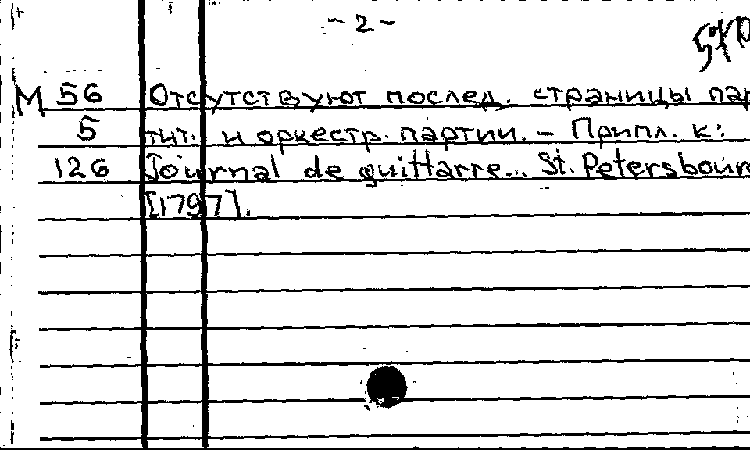 - 2 -
М 56 Отсутствуют послед. страницы пар
5 тит. и оркестр. партии. - Припл. к:
126 Journal de guittarre... St. Petersbour
[1797].